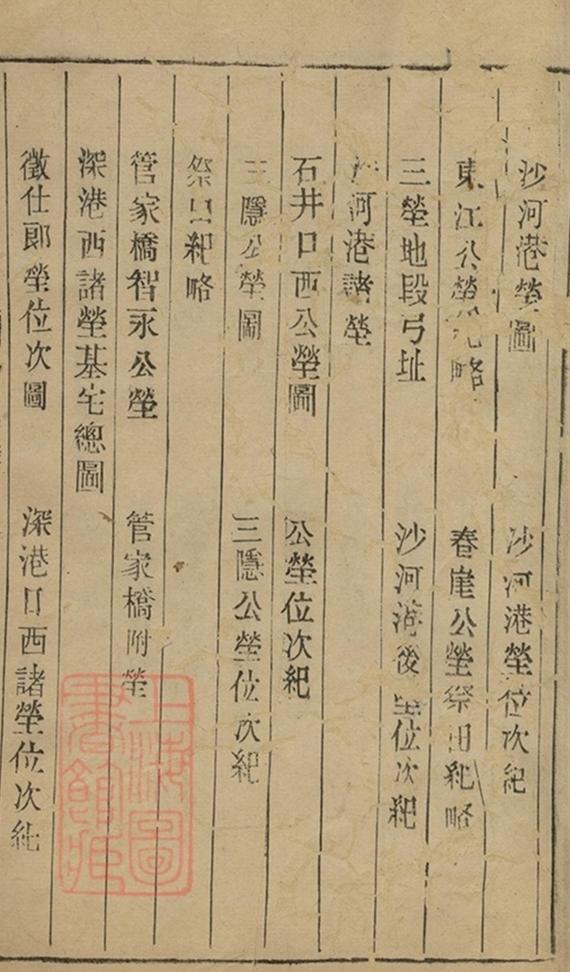 沙河港塋圖 沙河港塋位次紀
東江公塋紀略 春崖公塋祭田紀略
三塋地段弓址 沙河港後塋位次紀
沙河港諸塋
石井口西公塋圖 公塋位次紀
三隱公塋圖 三隱公塋位次紀
祭田紀略
管家橋智永公塋 管家橋附塋
深港西諸塋基宅總圖
徵仕郎塋位次圖 深港口西諸塋位次紀
上海圖書館藏